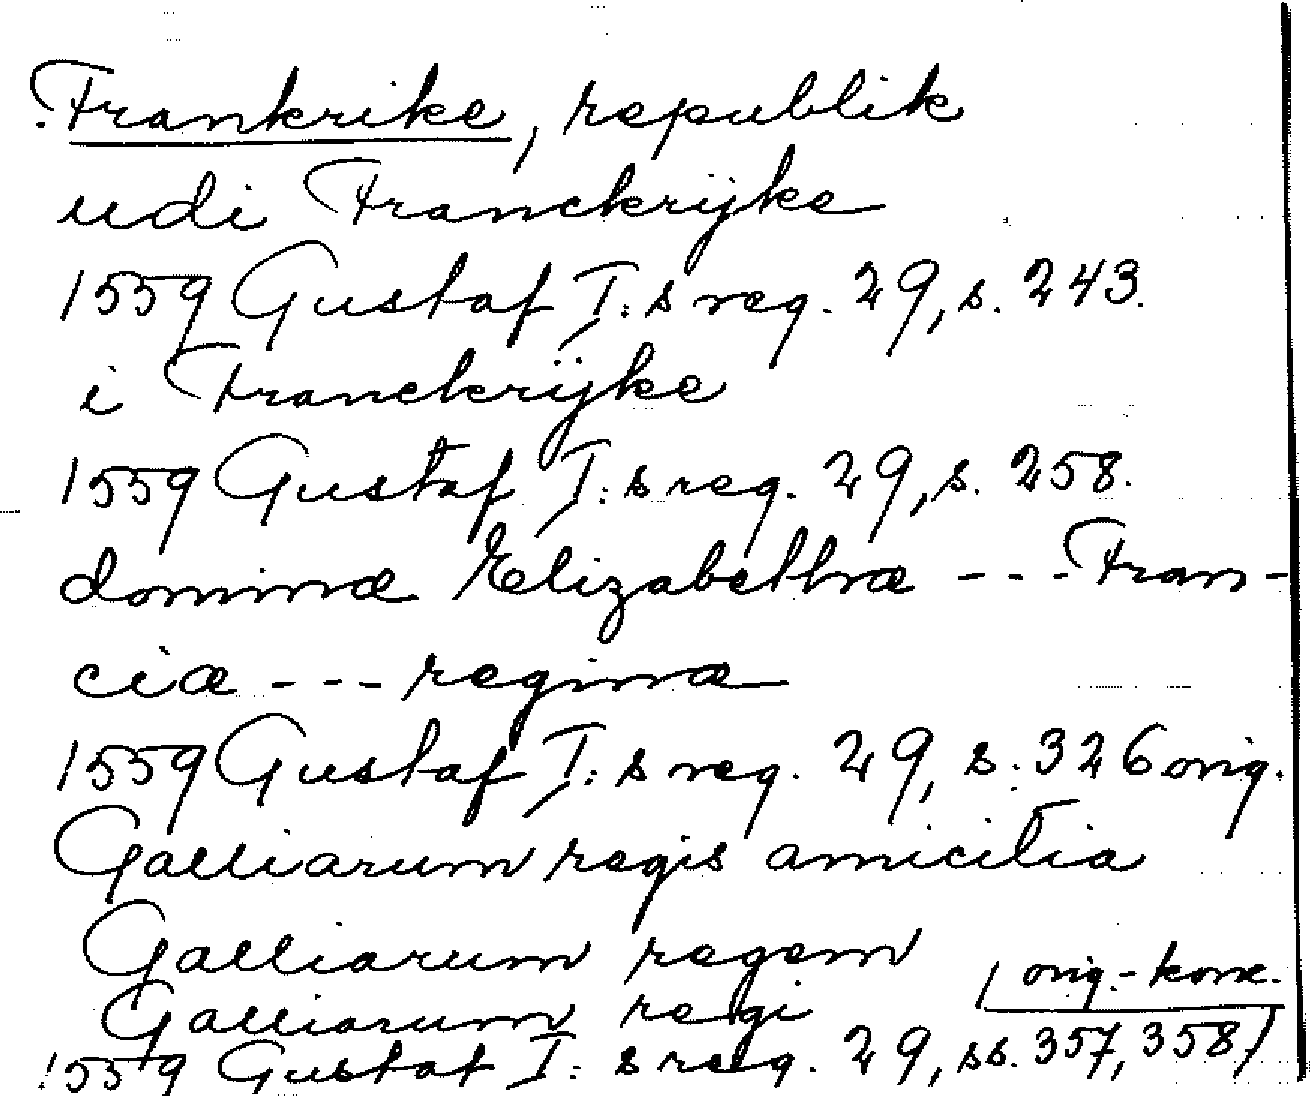 Frankrike, republik
udi Franckrijke
1559 Gustaf I:s reg. 29, s. 243.
i Franckrijke
1559 Gustaf I:s reg. 29, s. 258.
dominæ Elizabethæ --- Fran-
ciæ --- reginæ
1559 Gustaf I:s reg. 29, s. 326 orig.
Galliarum regis amicitia
Galliarum regem
Galliarum regi / orig.-konc.
1559 Gustaf I:s reg. 29, ss. 357, 358/